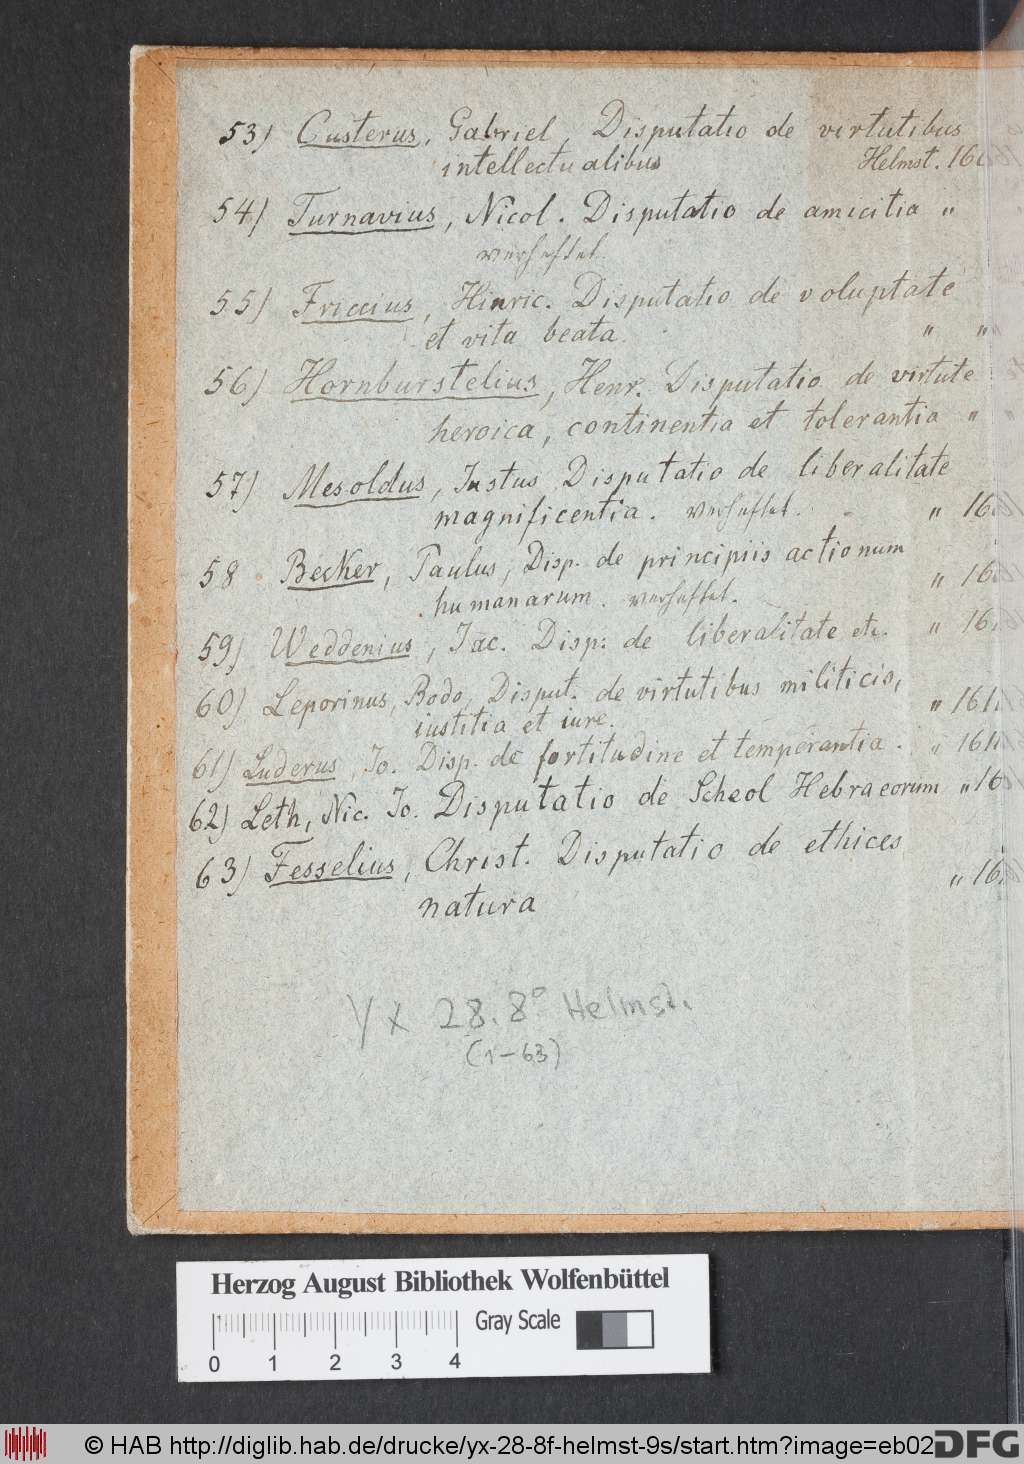 53) Custerus, Gabriel, Disputatio de virtutibus
intellectualibus Helmst. 160
54) Turnavius, Nicol. Disputatio de amicitia "
verheftet.
55) Friccius, Hinric. Disputatio de voluptate
et vita beata. " "
56) Hornburstelius, Henr. Disputatio de virtute
heroica, continentia et tolerantia "
57) Mesoldus, Justus Disputatio de liberalitate
magnificentia. verheftet. " 16
58 Becker, Paulus, Disp. de principiis actionum
humanarum. verheftet. " 16
59) Weddenius, Jac. Disp: de liberalitate etc. " 16
60) Leporinus, Bodo, Disput. de virtutibus militicis,
iustitia et iure. " 161
61) Luderus, Jo. Disp. de fortitudine et temperantia. " 161
62) Leth, Nic. Jo. Disputatio de Scheol Hebraeorum " 16
63) Fesselius, Christ. Disputatio de ethices
natura " 16
Yx 28. 8° Helmst.
(1-63)
Herzog August Bibliothek Wolfenbüttel
Gray Scale
0 1 2 3 4
© HAB http://diglib.hab.de/drucke/yx-28-8f-helmst-9s/start.htm?image=eb02
DFG